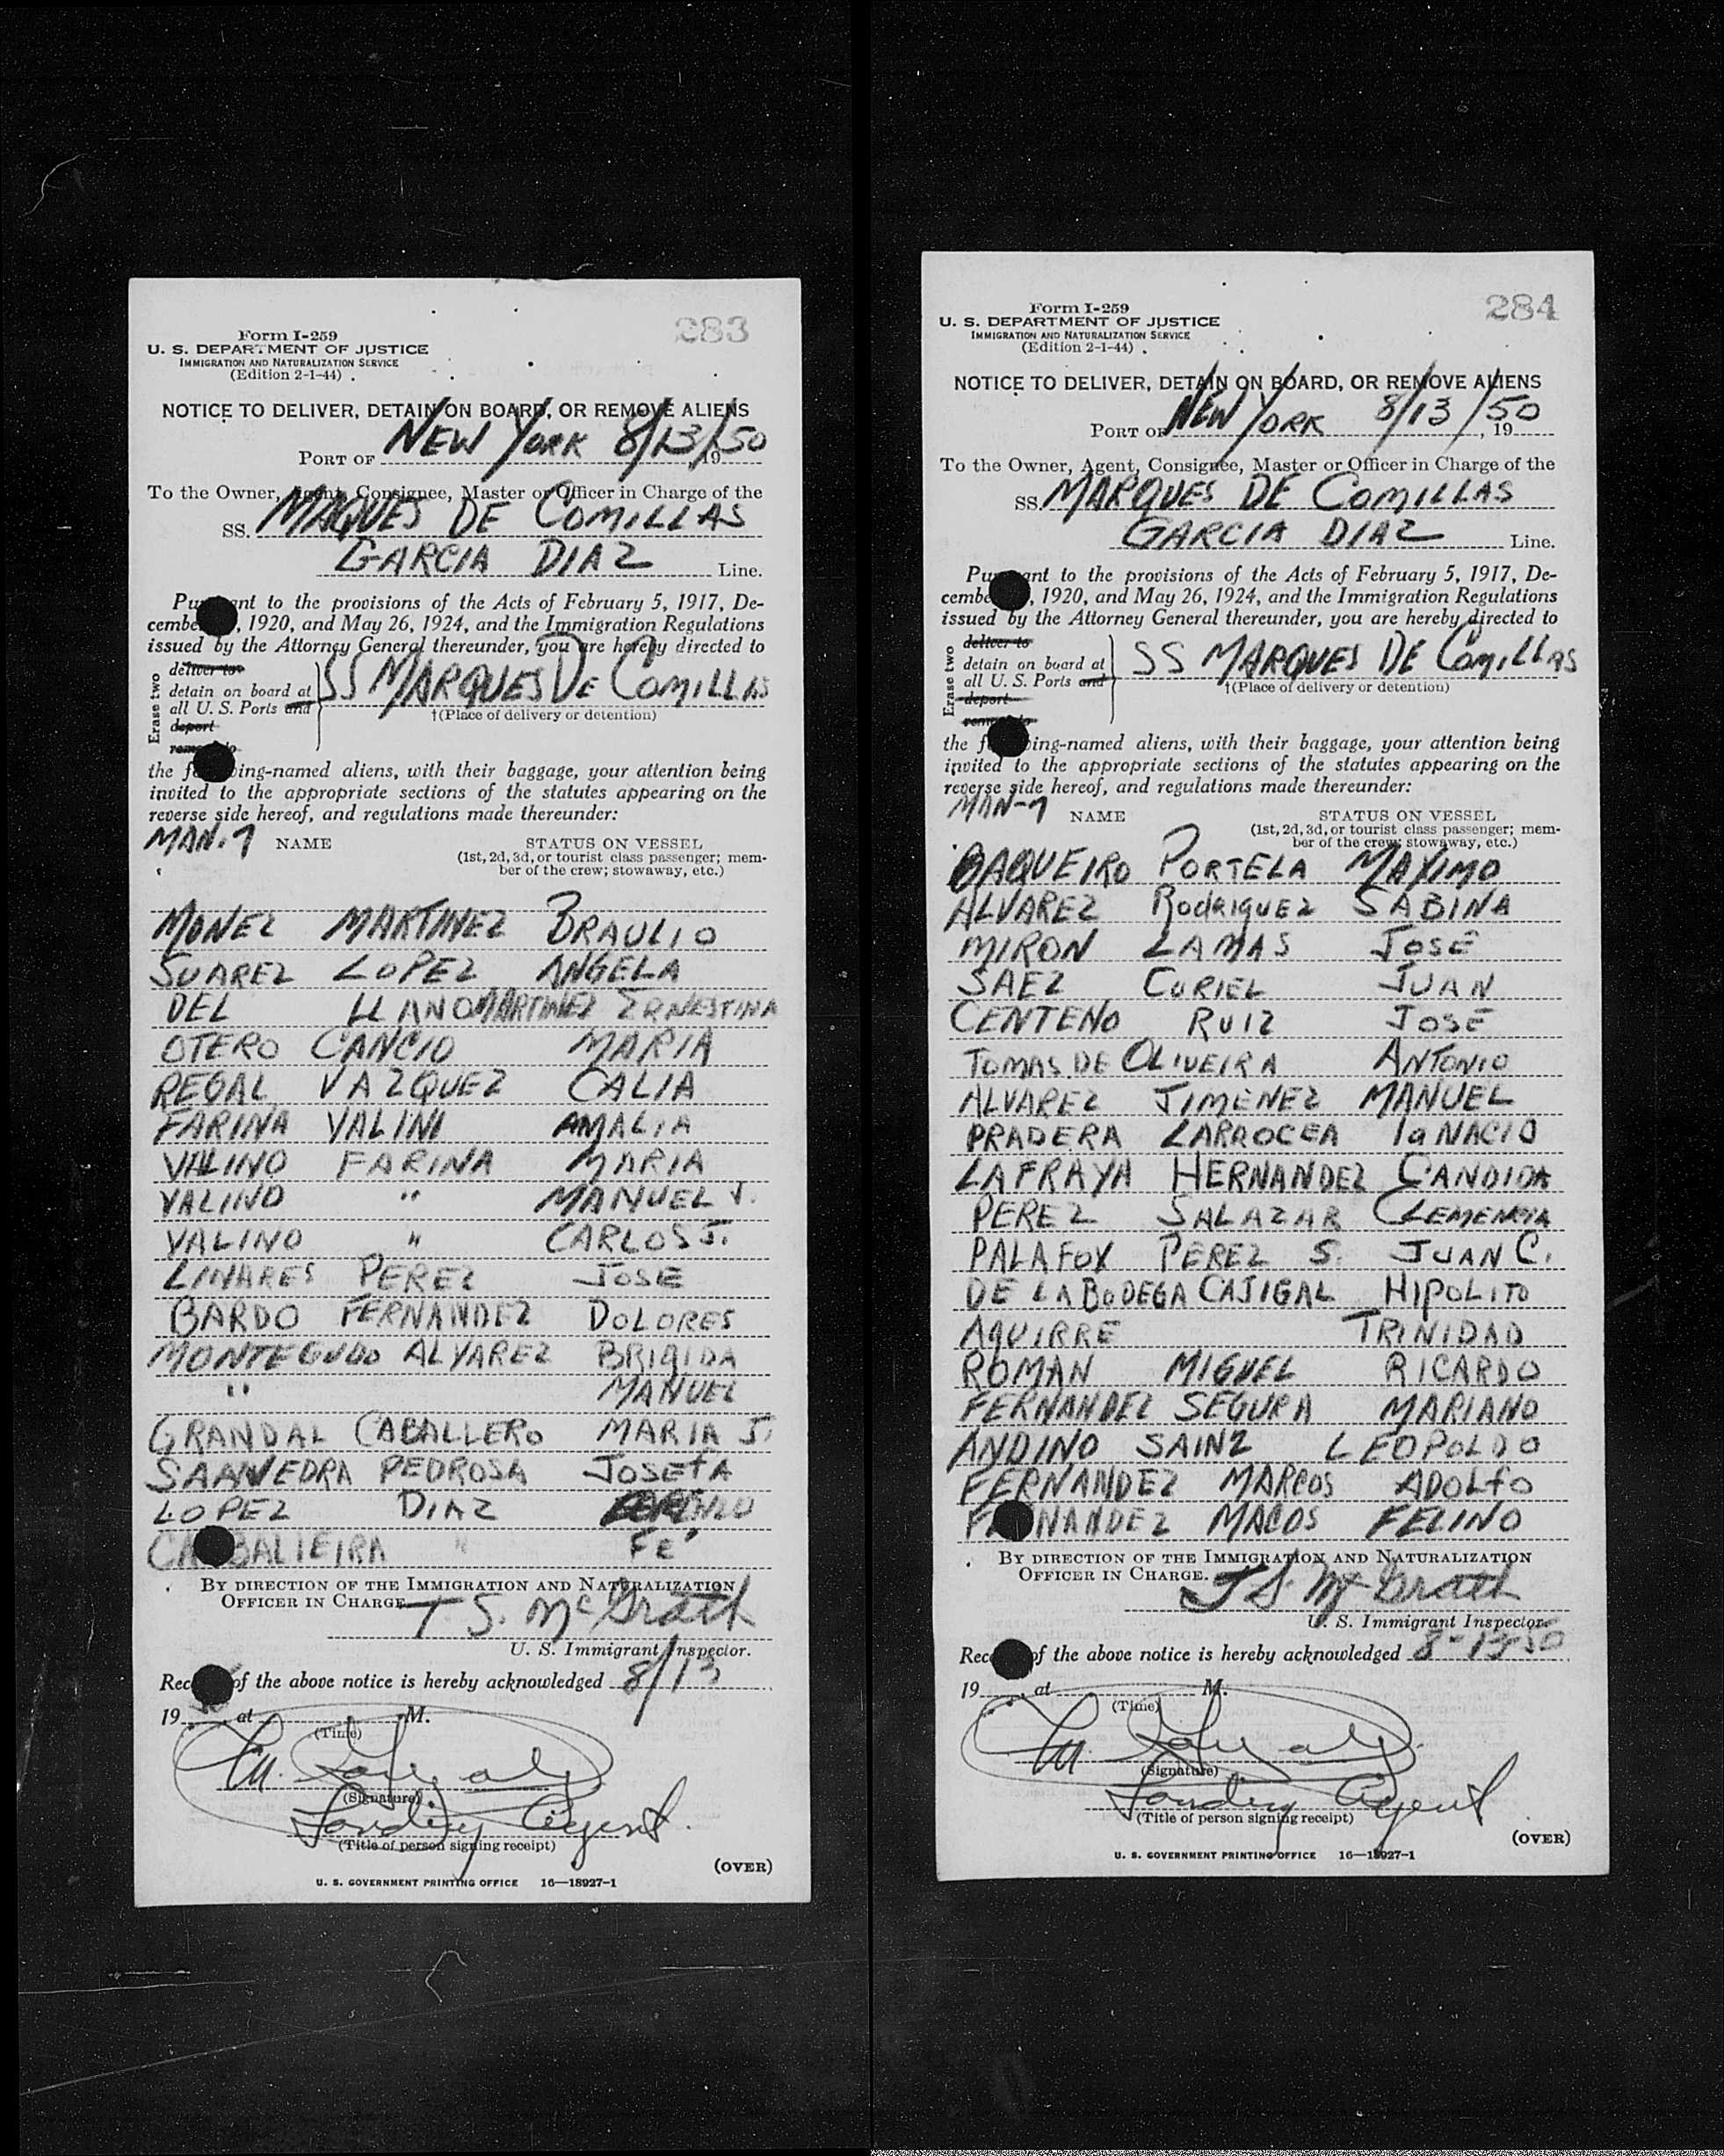 283
Form I-259
U. S. DEPARTMENT OF JUSTICE
IMMIGRATION AND NATURALIZATION SERVICE
(Edition 2-1-44)
NOTICE TO DELIVER, DETAIN ON BOARD, OR REMOVE ALIENS
PORT OF NEW YORK 8/13/50, 19
To the Owner, Agent, Consignee, Master or Officer in Charge of the
SS. MAQUES DE COMILLAS
GARCIA DIAZ Line.
Pu ant to the provisions of the Acts of February 5, 1917, De-
cembe , 1920, and May 26, 1924, and the Immigration Regulations
issued by the Attorney General thereunder, you are hereby directed to
Erase two
deliver to
detain on board at
all U. S. Ports and
deport
remove to
SS MARQUES DE COMILLAS
†(Place of delivery or detention)
the fo ing-named aliens, with their baggage, your attention being
invited to the appropriate sections of the statutes appearing on the
reverse side hereof, and regulations made thereunder:
MAN.7 NAME STATUS ON VESSEL
(1st, 2d, 3d, or tourist class passenger; mem-
ber of the crew; stowaway, etc.)
MONEZ MARTINEZ BRAULIO
SUAREZ LOPEZ ANGELA
DEL LLANO MARTINEZ ERNESTINA
OTERO CANCIO MARIA
REGAL VAZQUEZ CALIA
FARINA VALINI AMALIA
VALINO FARINA MARIA
VALINO " MANUEL J.
VALINO " CARLOS J.
LINARES PEREZ JOSE
BARDO FERNANDEZ DOLORES
MONTEGUDO ALVAREZ BRIGIDA
" MANUEL
GRANDAL CABALLERO MARIA J.
SAAVEDRA PEDROSA JOSEFA
LOPEZ DIAZ LORENZO
CA BALIEIRA " FE
BY DIRECTION OF THE IMMIGRATION AND NATURALIZATION
OFFICER IN CHARGE.
T S. McGrath
U. S. Immigrant Inspector.
Rec of the above notice is hereby acknowledged 8/13
19 , at M.
(Time)
(Signature)
Landing Agent.
(Title of person signing receipt)
(OVER)
U. S. GOVERNMENT PRINTING OFFICE 16—18927-1
284
Form I-259
U. S. DEPARTMENT OF JUSTICE
IMMIGRATION AND NATURALIZATION SERVICE
(Edition 2-1-44)
NOTICE TO DELIVER, DETAIN ON BOARD, OR REMOVE ALIENS
PORT OF NEW YORK 8/13/50, 19
To the Owner, Agent, Consignee, Master or Officer in Charge of the
SS MARQUES DE COMILLAS
GARCIA DIAZ Line.
Pu ant to the provisions of the Acts of February 5, 1917, De-
cembe , 1920, and May 26, 1924, and the Immigration Regulations
issued by the Attorney General thereunder, you are hereby directed to
Erase two
deliver to
detain on board at
all U. S. Ports and
deport
remove to
SS MARQUES DE COMILLAS
†(Place of delivery or detention)
the f ing-named aliens, with their baggage, your attention being
invited to the appropriate sections of the statutes appearing on the
reverse side hereof, and regulations made thereunder:
MAN-7 NAME STATUS ON VESSEL
(1st, 2d, 3d, or tourist class passenger; mem-
ber of the crew; stowaway, etc.)
BAQUEIRO PORTELA MAXIMO
ALVAREZ RODRIGUEZ SABINA
MIRON LAMAS JOSE
SAEZ CURIEL JUAN
CENTENO RUIZ JOSE
TOMAS DE OLIVEIRA ANTONIO
ALVAREZ JIMENEZ MANUEL
PRADERA LARROCEA IGNACIO
LAFRAYA HERNANDEZ CANDIDA
PEREZ SALAZAR CLEMENCIA
PALAFOX PEREZ S. JUAN C.
DE LA BODEGA CAJIGAL HIPOLITO
AGUIRRE TRINIDAD
ROMAN MIGUEL RICARDO
FERNANDEZ SEGURA MARIANO
ANDINO SAINZ LEOPOLDO
FERNANDEZ MARCOS ADOLFO
F NANDEZ MACOS FELINO
BY DIRECTION OF THE IMMIGRATION AND NATURALIZATION
OFFICER IN CHARGE.
T S. McGrath
U. S. Immigrant Inspector.
Rec of the above notice is hereby acknowledged 8-13-50
19 , at M.
(Time)
(Signature)
Landing Agent
(Title of person signing receipt)
(OVER)
U. S. GOVERNMENT PRINTING OFFICE 16—18927-1